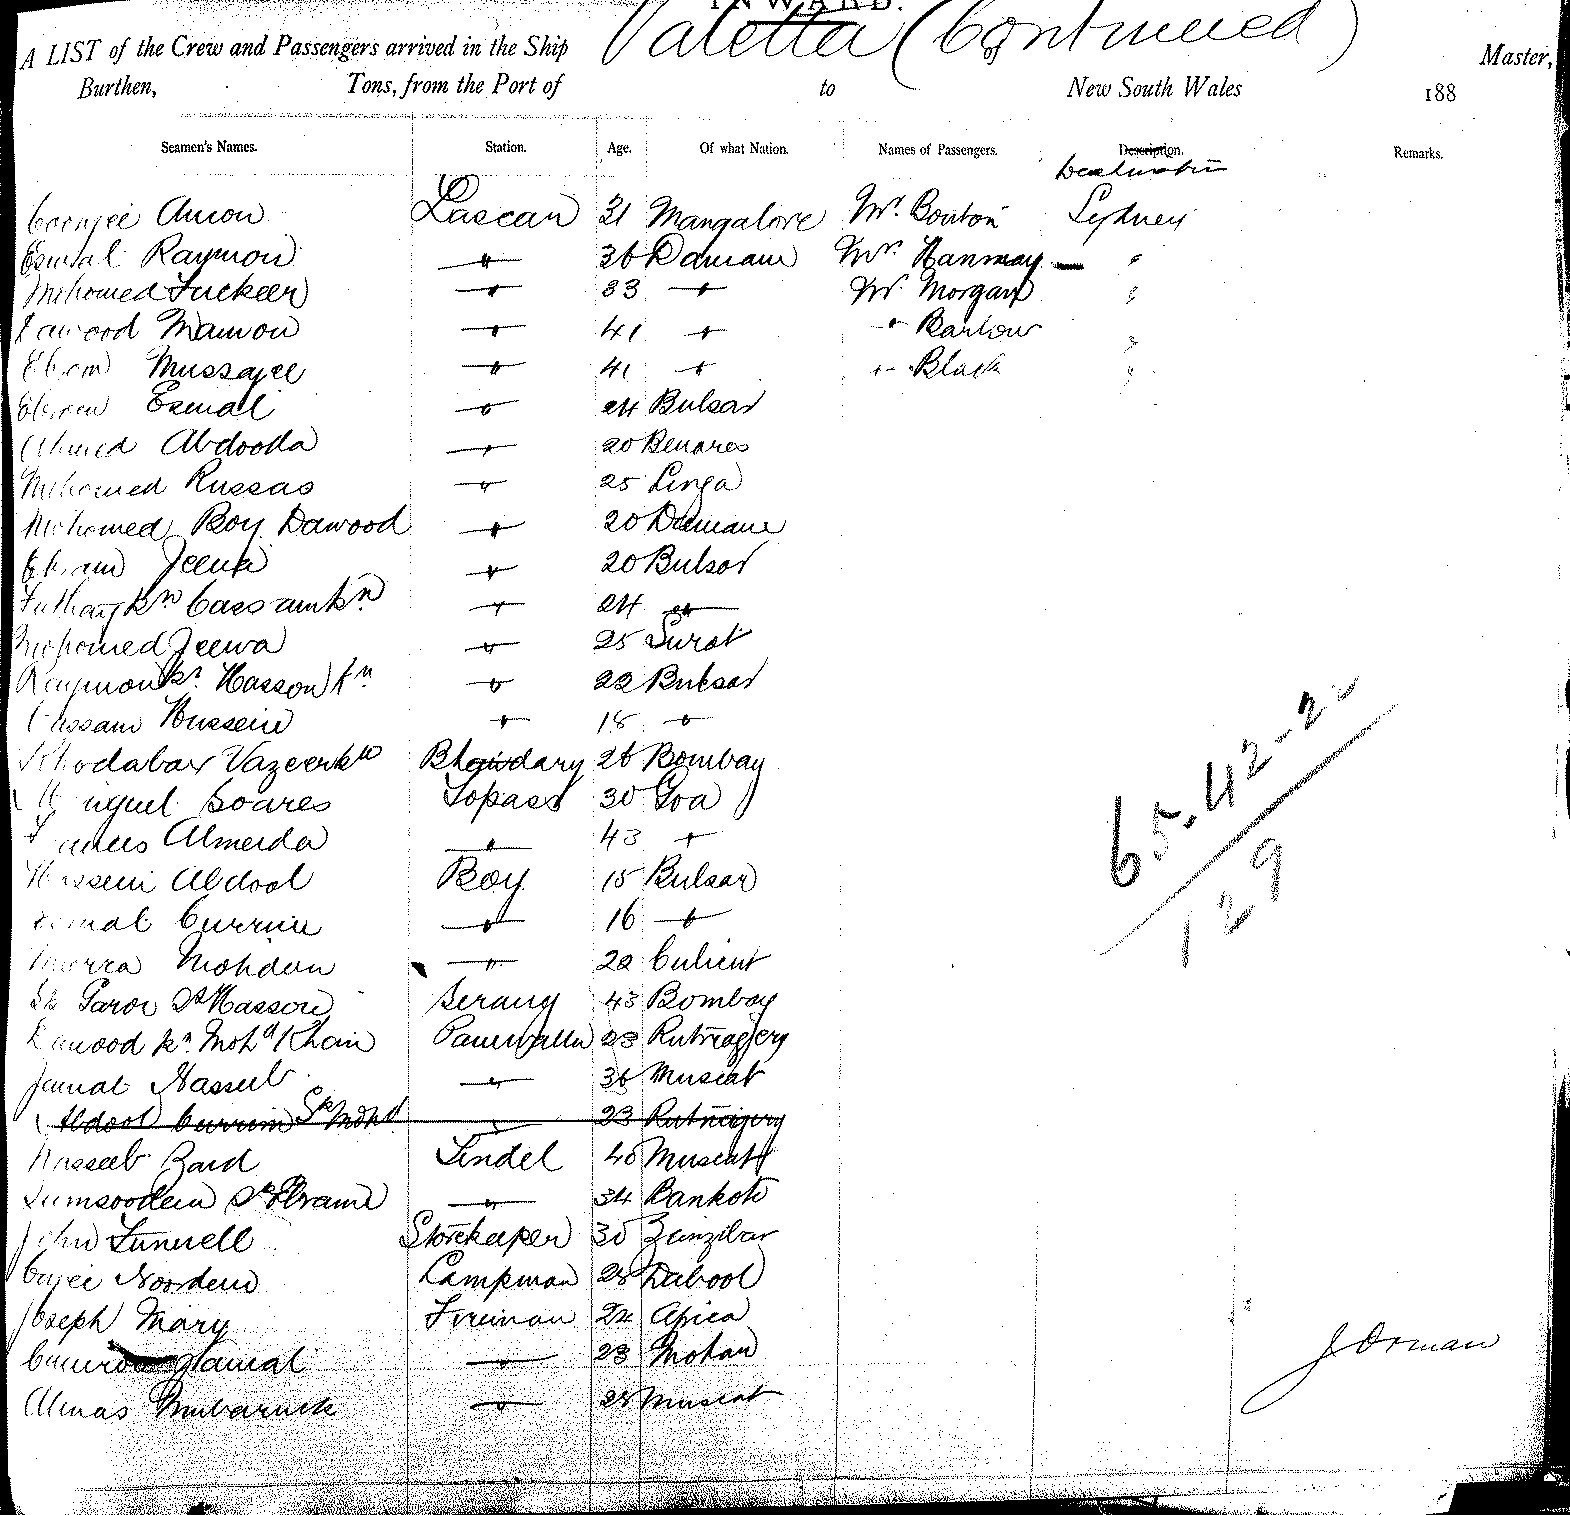 INWARD.
Valetta (Continued)
A LIST of the Crew and Passengers arrived in the Ship of Master,
Burthen, Tons, from the Port of to New South Wales 188
Seamen's Names. Station. Age. Of what Nation. Names of Passengers. Description. Remarks.
Destination
Amon Lascar 31 Mangalore Mr. Bouton Sydney
Esmal Raymon " 36 Damaun Mrs. Hanmay "
Mehomed Fuckeer " 33 " Mr Morgan "
Dawood Mamon " 41 " " Barlow "
Ebram Mussajee " 41 " " Black "
Ebram Esmal " 24 Bulsar
Ahmed Abdoolla " 20 Benares
Mehomed Russas " 25 Linga
Mehomed Boy Dawood " 20 Damaun
Ebram Jeewa " 20 Bulsar
Cassamkn " 24 "
Mehomed Jeewa " 25 Surat
Raymonkn. Hassonkn " 22 Bulsar
Cassam Hussein " 18 "
Khodabax Vazeerkn Bhandary 26 Bombay
Miguel Soares Topass 30 Goa
Almeida " 43 "
Hassein Abdool Boy 15 Bulsar
Esmal Currim " 16 "
Mohdeen " 22
Hasson Serang 43 Bombay
Dawood kn. Mohd Khan 23 Rutnagery
Jamal Nasseeb " 36 Muscat
Abdool Currim Sk Mohd " 23 Rutnagery
Nasseeb Zaid Tindel 40 Muscat
Sumsoodein Sk Ebram " 34 Bankote
John Funnell Storekeeper 30 Zanzibar
Noordeen Lampman 28 Dabool
Joseph Mary Fireman 24 Africa
Jamal " 23
Almas Mubaruck " 28 Muscat
65.42-22
129
J Orman